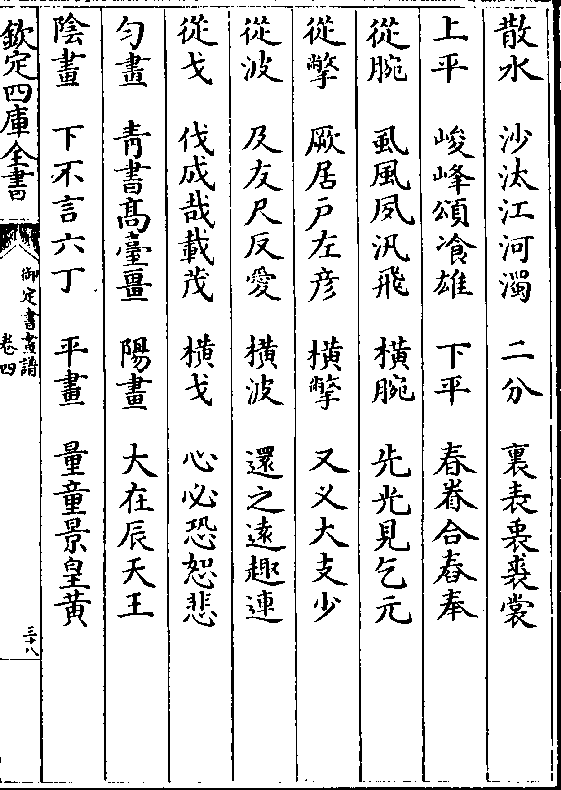 散水　沙汰江河濁　二分　裏表裘裳
上平　峻峰頌飡雄　下平　春眷合舂奉
從腕　虱風夙汎飛　橫腕　先光見乞元
從撆　厥居戶左彦　橫撆　又义大支少
從波　及友尺反愛　橫波　還之遠趣連
從戈　伐成哉載茂　橫戈　心必恐恕悲
勻畫　靑書髙臺畺　陽畫　大在辰天王
陰畫　下不言六丁　平畫　量童景皇黄
欽定四庫全書
御定書畫譜
卷四
三十八